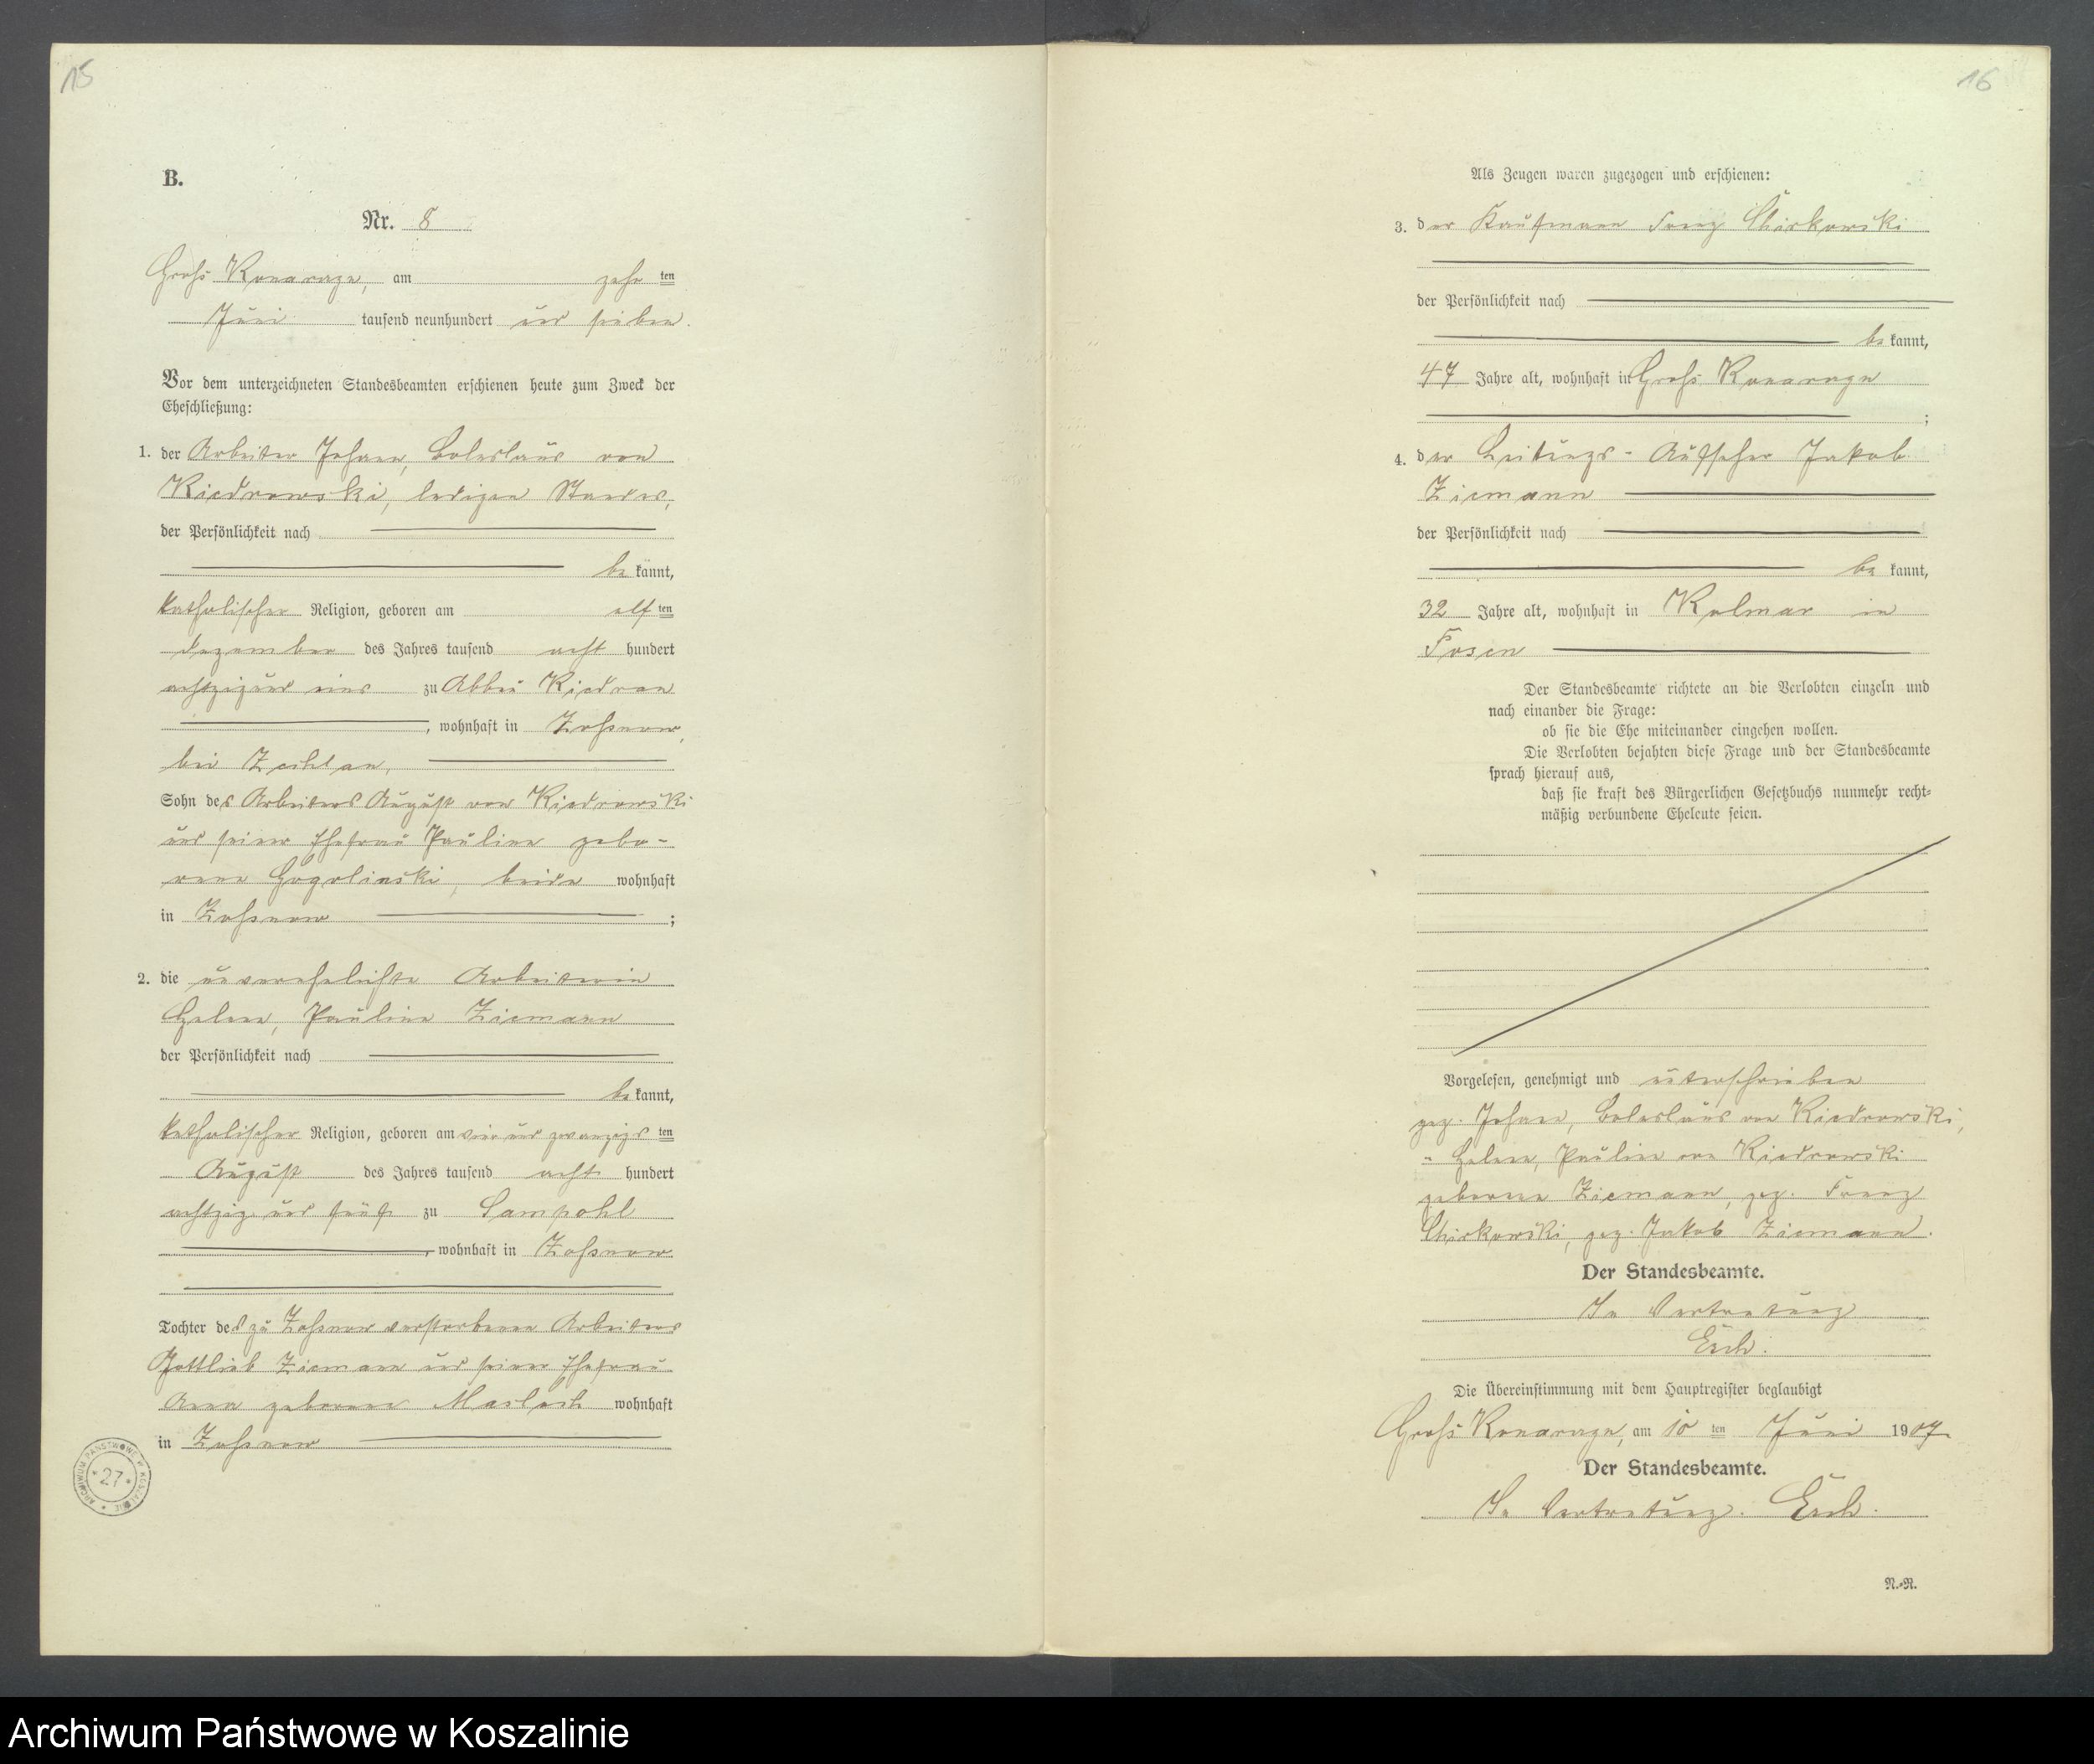 15
B.
Nr. 8
Groß Konarczyn, am zehnten
Juni tausend neunhundert und sieben.
Vor dem unterzeichneten Standesbeamten erschienen heute zum Zweck der
Eheschließung:
1. der Arbeiter Johann, Boleslaus von
Kiedrowski, ledigen Standes,
der Persönlichkeit nach
bekannt,
katholischer Religion, geboren am elften
Dezember des Jahres tausend acht hundert
achtzig und eins zu Abbau Kiedrau
, wohnhaft in Zossnow,
bei Zechlau,
Sohn des Arbeiters August von Kiedrowski
und seiner Ehefrau Pauline gebo-
rene Gogolinski, beide wohnhaft
in Zossnow ;
2. die unverehelichte Arbeiterin
Helene, Pauline Ziemann
der Persönlichkeit nach
bekannt,
katholischer Religion, geboren am vier und zwanzigsten
August des Jahres tausend acht hundert
achtzig und fünf zu Sampohl
, wohnhaft in Zossnow
Tochter des zu Zossnow verstorbenen Arbeiters
Gottlieb Ziemann und seiner Ehefrau
Anna geborene wohnhaft
in Zossnow
ARCHIWUM PAŃSTWOWE W KOSZALINIE
* 27 *
16
Als Zeugen waren zugezogen und erschienen:
3. der Kaufmann Franz
der Persönlichkeit nach
bekannt,
47 Jahre alt, wohnhaft in Groß Konarczyn
;
4. der Leitungs-Aufseher Jakob
Ziemann
der Persönlichkeit nach
bekannt,
32 Jahre alt, wohnhaft in Kolmar in
Posen
Der Standesbeamte richtete an die Verlobten einzeln und
nach einander die Frage:
ob sie die Ehe miteinander eingehen wollen.
Die Verlobten bejahten diese Frage und der Standesbeamte
sprach hierauf aus,
daß sie kraft des Bürgerlichen Gesetzbuchs nunmehr recht-
mäßig verbundene Eheleute seien.
Vorgelesen, genehmigt und unterschrieben
gez. Johann, Boleslaus von Kiedrowski,
" Helene, Pauline von Kiedrowski
geborene Ziemann, gez. Franz
gez. Jakob Ziemann.
Der Standesbeamte.
In Vertretung
Die Übereinstimmung mit dem Hauptregister beglaubigt
Groß Konarczyn, am 10 ten Juni 1907
Der Standesbeamte.
In Vertretung.
N.-R.
Archiwum Państwowe w Koszalinie